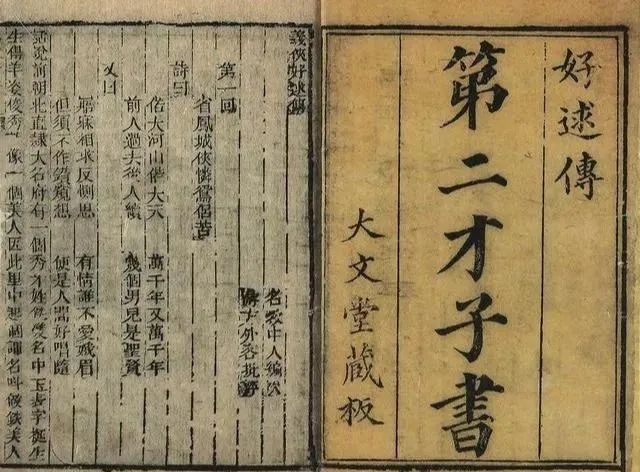 好逑傳
第二才子書
大文堂藏板
義俠好逑傳
第一回
省鳳城俠憐鴛侶苦
名教中人編次
外客批評
詩曰
偌大河山偌大天 萬千年又萬千年
前人過去後人續 幾個男兒是聖賢
又曰
寤寐相求反側思 有情誰不愛娥眉
但須不作鑽窺想 便是人間好唱隨
話說前朝北直隸大名府有一個秀才姓鐵雙名中玉表字挺生
生得丰姿俊秀像一個美人因此里中起個諢名叫做鐵美人